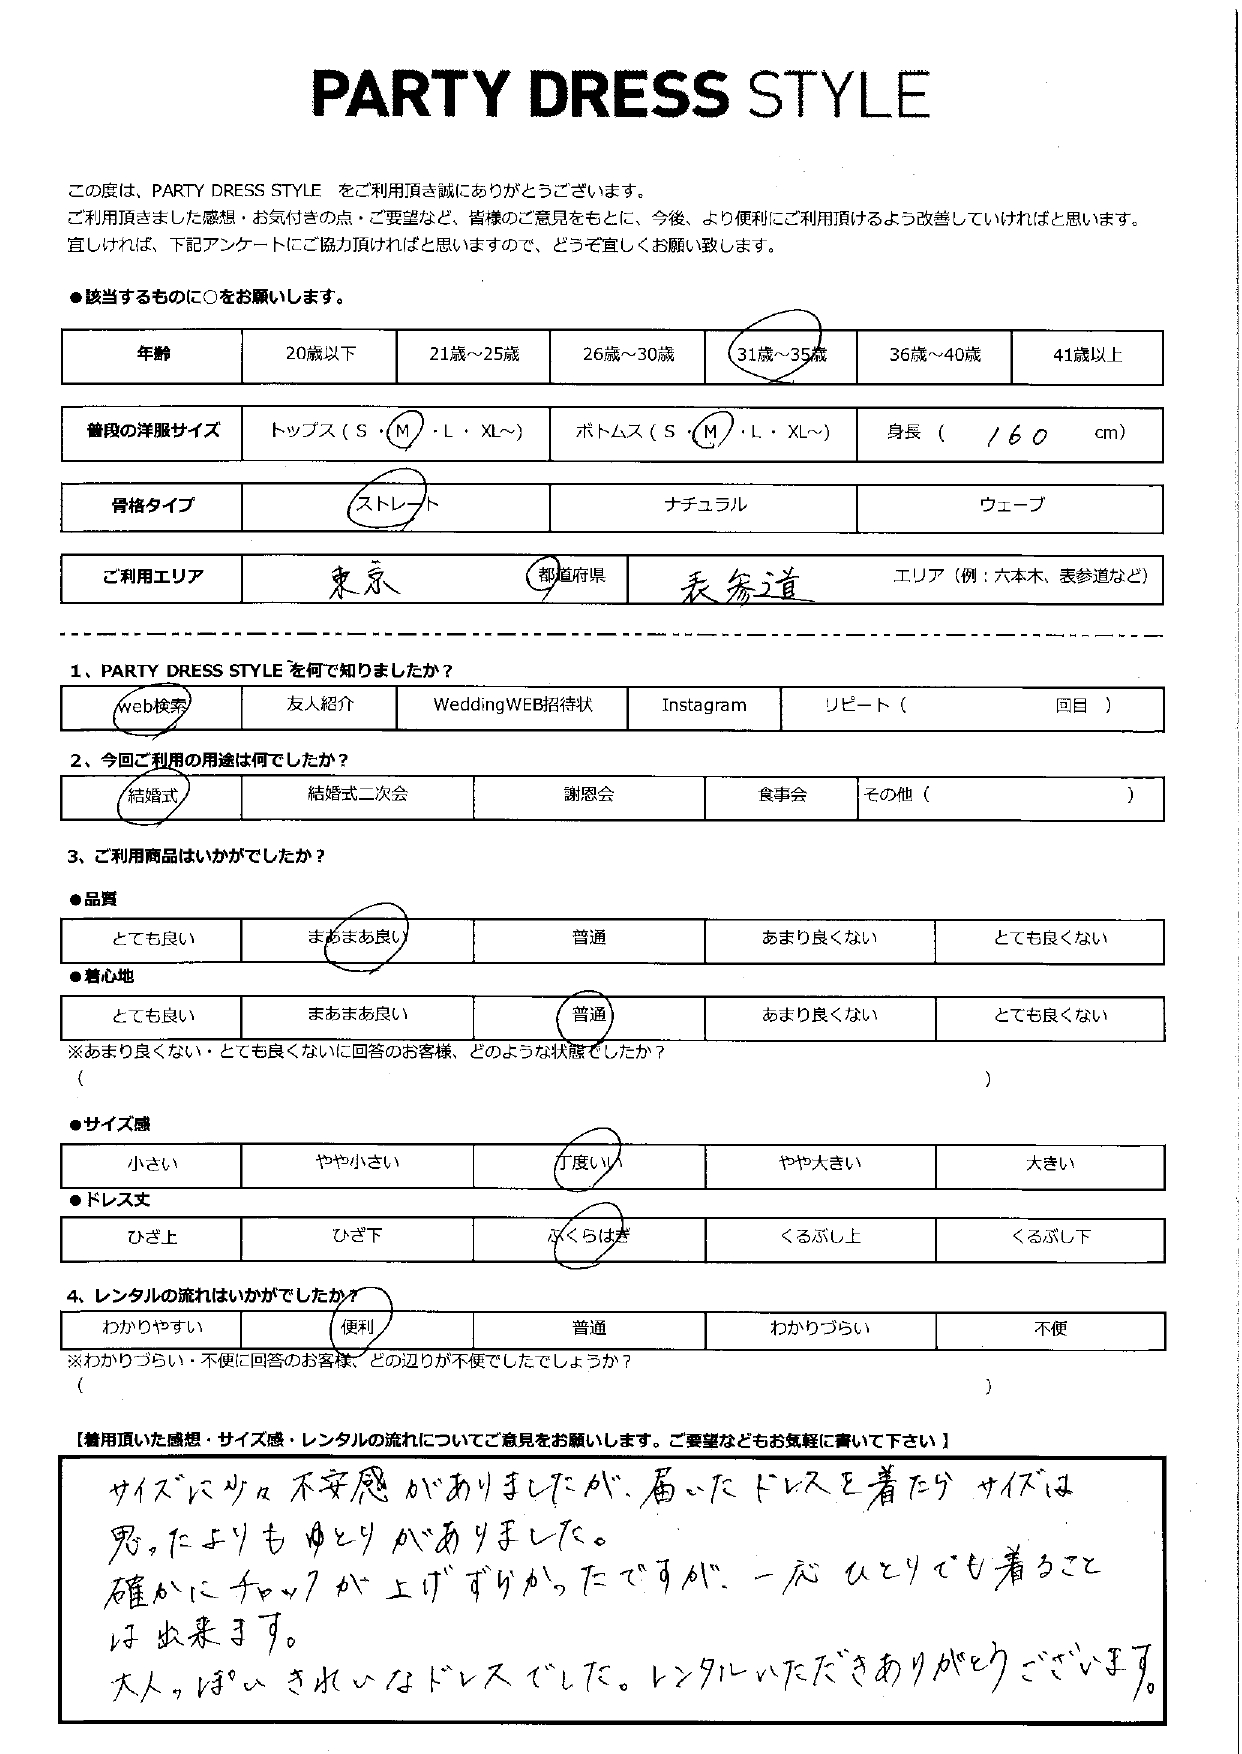 PARTY DRESS STYLE
この度は、PARTY DRESS STYLE をご利用頂き誠にありがとうございます。
ご利用頂きました感想・お気付きの点・ご要望など、皆様のご意見をもとに、今後、より便利にご利用頂けるよう改善していければと思います。
宜しければ、下記アンケートにご協力頂ければと思いますので、どうぞ宜しくお願い致します。
●該当するものに○をお願いします。
年齢 20歳以下 21歳～25歳 26歳～30歳 31歳～35歳 36歳～40歳 41歳以上
普段の洋服サイズ トップス ( S ・ M ・ L ・ XL～) ボトムス ( S ・ M ・ L ・ XL～) 身長 ( 160 cm)
骨格タイプ ストレート ナチュラル ウェーブ
ご利用エリア 東京 都道府県 表参道 エリア（例：六本木、表参道など）
1、PARTY DRESS STYLE を何で知りましたか？
web検索 友人紹介 WeddingWEB招待状 Instagram リピート（ 回目 ）
2、今回ご利用の用途は何でしたか？
結婚式 結婚式二次会 謝恩会 食事会 その他（ ）
3、ご利用商品はいかがでしたか？
●品質
とても良い まあまあ良い 普通 あまり良くない とても良くない
●着心地
とても良い まあまあ良い 普通 あまり良くない とても良くない
※あまり良くない・とても良くないに回答のお客様、どのような状態でしたか？
（ ）
●サイズ感
小さい やや小さい 丁度いい やや大きい 大きい
●ドレス丈
ひざ上 ひざ下 ふくらはぎ くるぶし上 くるぶし下
4、レンタルの流れはいかがでしたか？
わかりやすい 便利 普通 わかりづらい 不便
※わかりづらい・不便に回答のお客様、どの辺りが不便でしたでしょうか？
（ ）
【着用頂いた感想・サイズ感・レンタルの流れについてご意見をお願いします。ご要望などもお気軽に書いて下さい】
サイズに少々不安感がありましたが、届いたドレスを着たらサイズは
思ったよりもゆとりがありました。
確かにチャックが上げずらかったですが、一応ひとりでも着ること
は出来ます。
大人っぽいきれいなドレスでした。レンタルいただきありがとうございます。